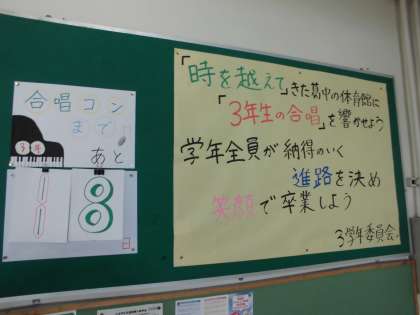 合唱コン
まで♪
3年
あと
18
日
「時を越えて」きた葛中の体育館に
「3年生の合唱」を響かせよう
学年全員が納得のいく
進路を決め
笑顔で卒業しよう
3学年委員会